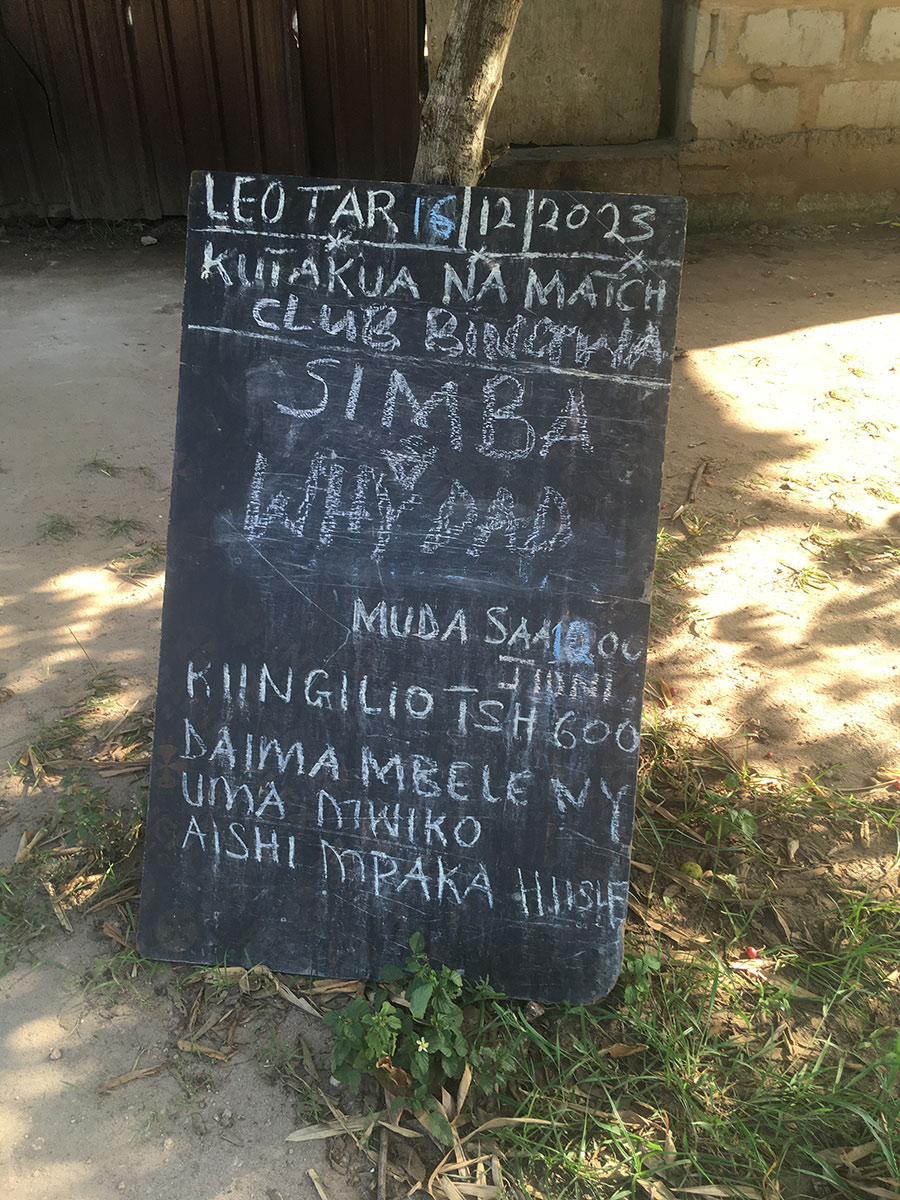 LEO TAR 16/12/2023
KUTAKUA NA MATCH
CLUB BINGWA
SIMBA
V
WHY DAD
MUDA SAA 10.00
JIONI
KIINGILIO TSH 600
DAIMA MBELE NY
UMA MWIKO
AISHI MPAKA